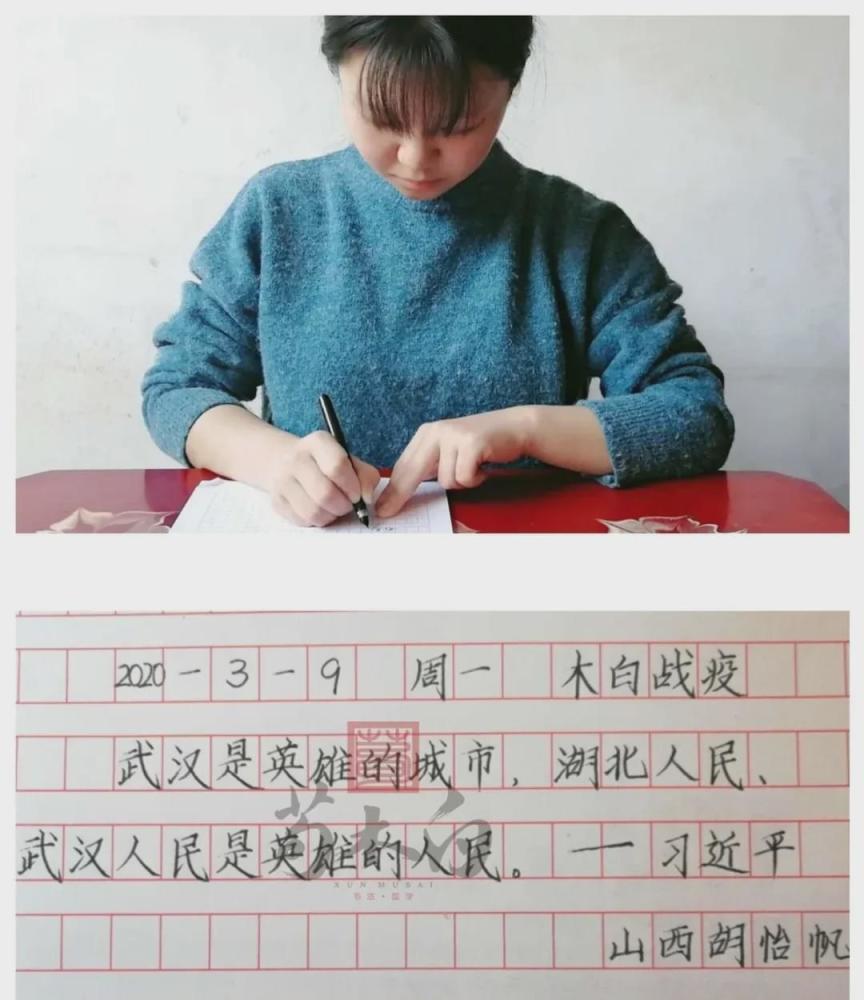 2020-3-9 周一 木白战疫
武汉是英雄的城市，湖北人民、
武汉人民是英雄的人民。—习近平
山西胡怡帆
荀木白
XUN MUBAI